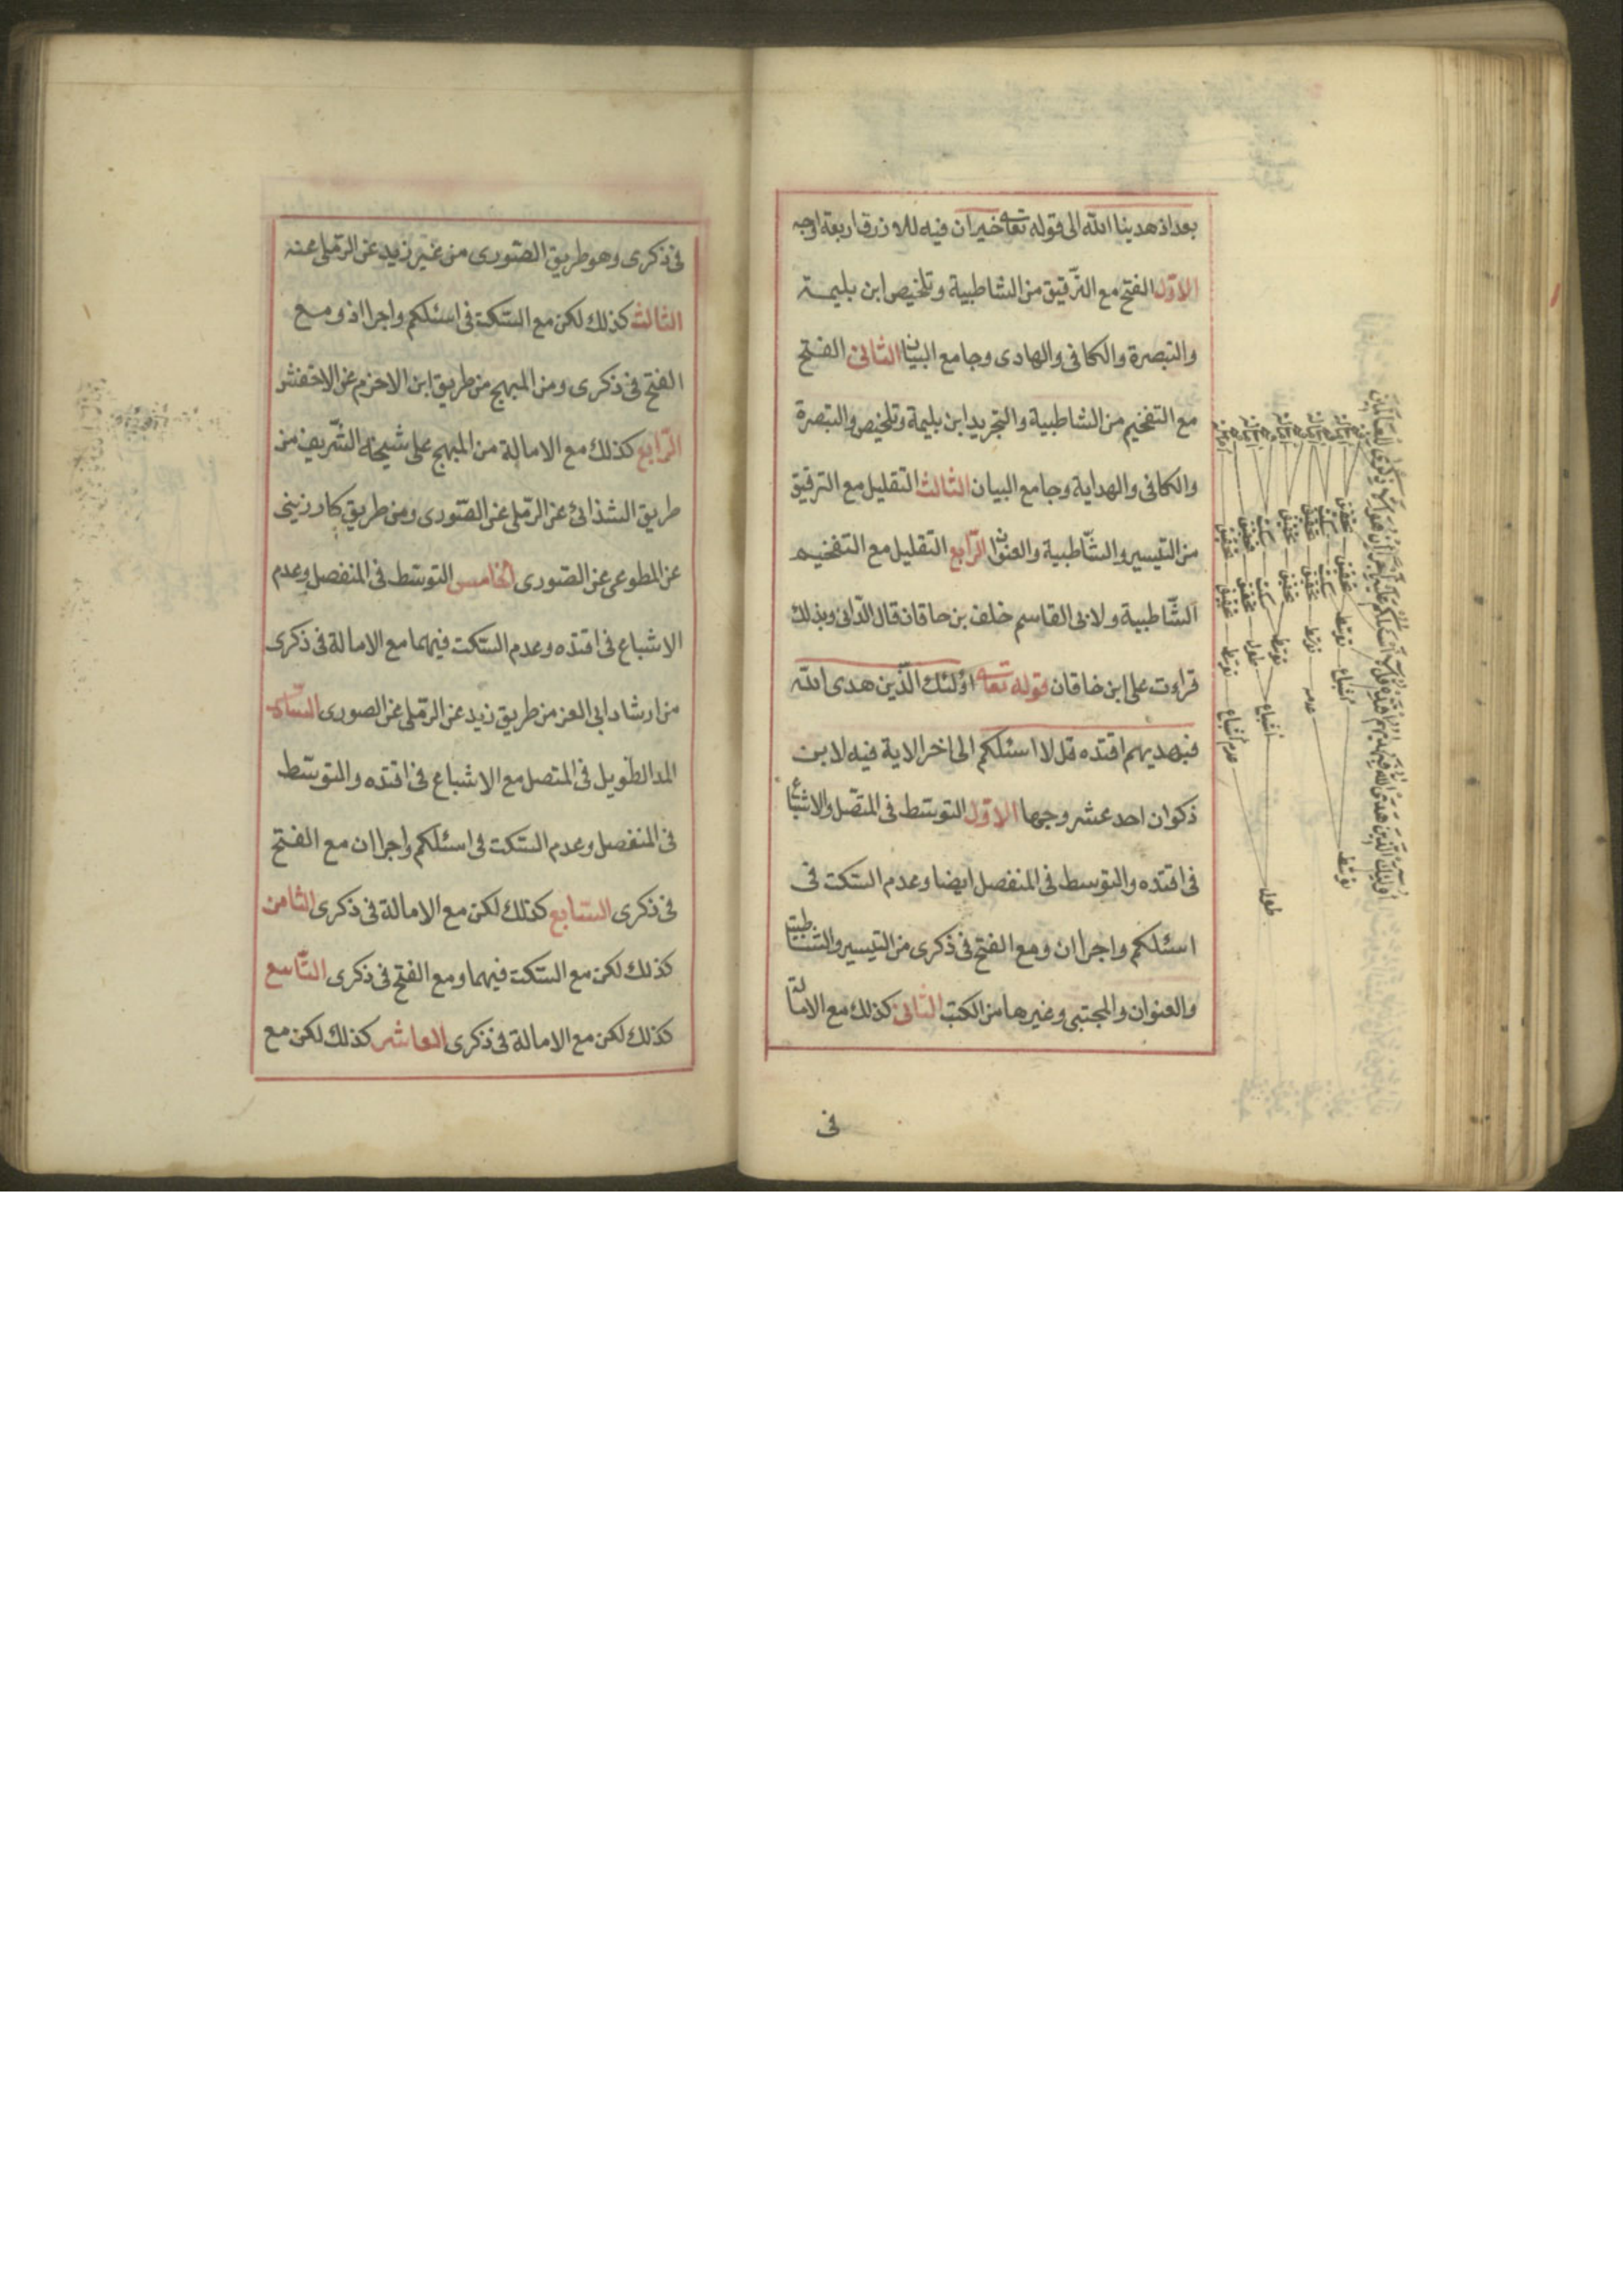 بعد اذ هدينا الله الى قوله تعا حيران فيه للازرق اربعة اوجه
الاوّل الفتح مع الترقيق من الشاطبية وتلخيص ابن بليمة
والتبصرة والكافى والهادى وجامع البيان الثانى الفتح
مع التفخيم من الشاطبية والتجريد ابن بليمة وتلخيص والتبصرة
والكافى والهداية وجامع البيان الثالث التقليل مع الترقيق
من التيسير والشّاطبية والعنوان الرّابع التقليل مع التفخيم
الشّاطبية ولابى القاسم خلف بن خاقان قال الدّانى وبذلك
قراءت على ابن خاقان قوله تعا اولئك الّذين هدى الله
فبهديهم اقتده قل لا اسئلكم الى اخر الاية فيه لابن
ذكوان احد عشر وجها الاوّل التوسّط فى المتصل والاشباع
فى اقتده والتوسط فى المنفصل ايضا وعدم السّكت فى
اسئلكم واجرا ان ومع الفتح فى ذكرى من التيسير والشاطبية
والعنوان والمجتبى وغيرها من الكتب الثّانى كذلك مع الامالة
فى
فى ذكرى وهو طريق الصّورى من غير زيد عن الرّملى عنه
الثالث كذلك لكن مع السّكت فى اسئلكم واجرا اذ ومع
الفتح فى ذكرى ومن المبهج من طريق ابن الاخرم عن الاخفش
الرّابع كذلك مع الامالة من المبهج على شيخه الشّريف من
طريق الشذائى عن الرّملى عن الصّورى ومن طريق كارزينى
عن المطوعى عن الصّورى الخامس التوسّط فى المنفصل وعدم
الاشباع فى اقتده وعدم السّكت فيهما مع الامالة فى ذكرى
من ارشاد ابى العز من طريق زيد عن الرّملى عن الصورى السّادس
المد الطّويل فى المتصل مع الاشباع فى اقتده والتوسّط
فى المنفصل وعدم السّكت فى اسئلكم واجرا ان مع الفتح
فى ذكرى السّابع كذلك لكن مع الامالة فى ذكرى الثامن
كذلك لكن مع السّكت فيهما ومع الفتح فى ذكرى التّاسع
كذلك لكن مع الامالة فى ذكرى العاشر كذلك لكن مع